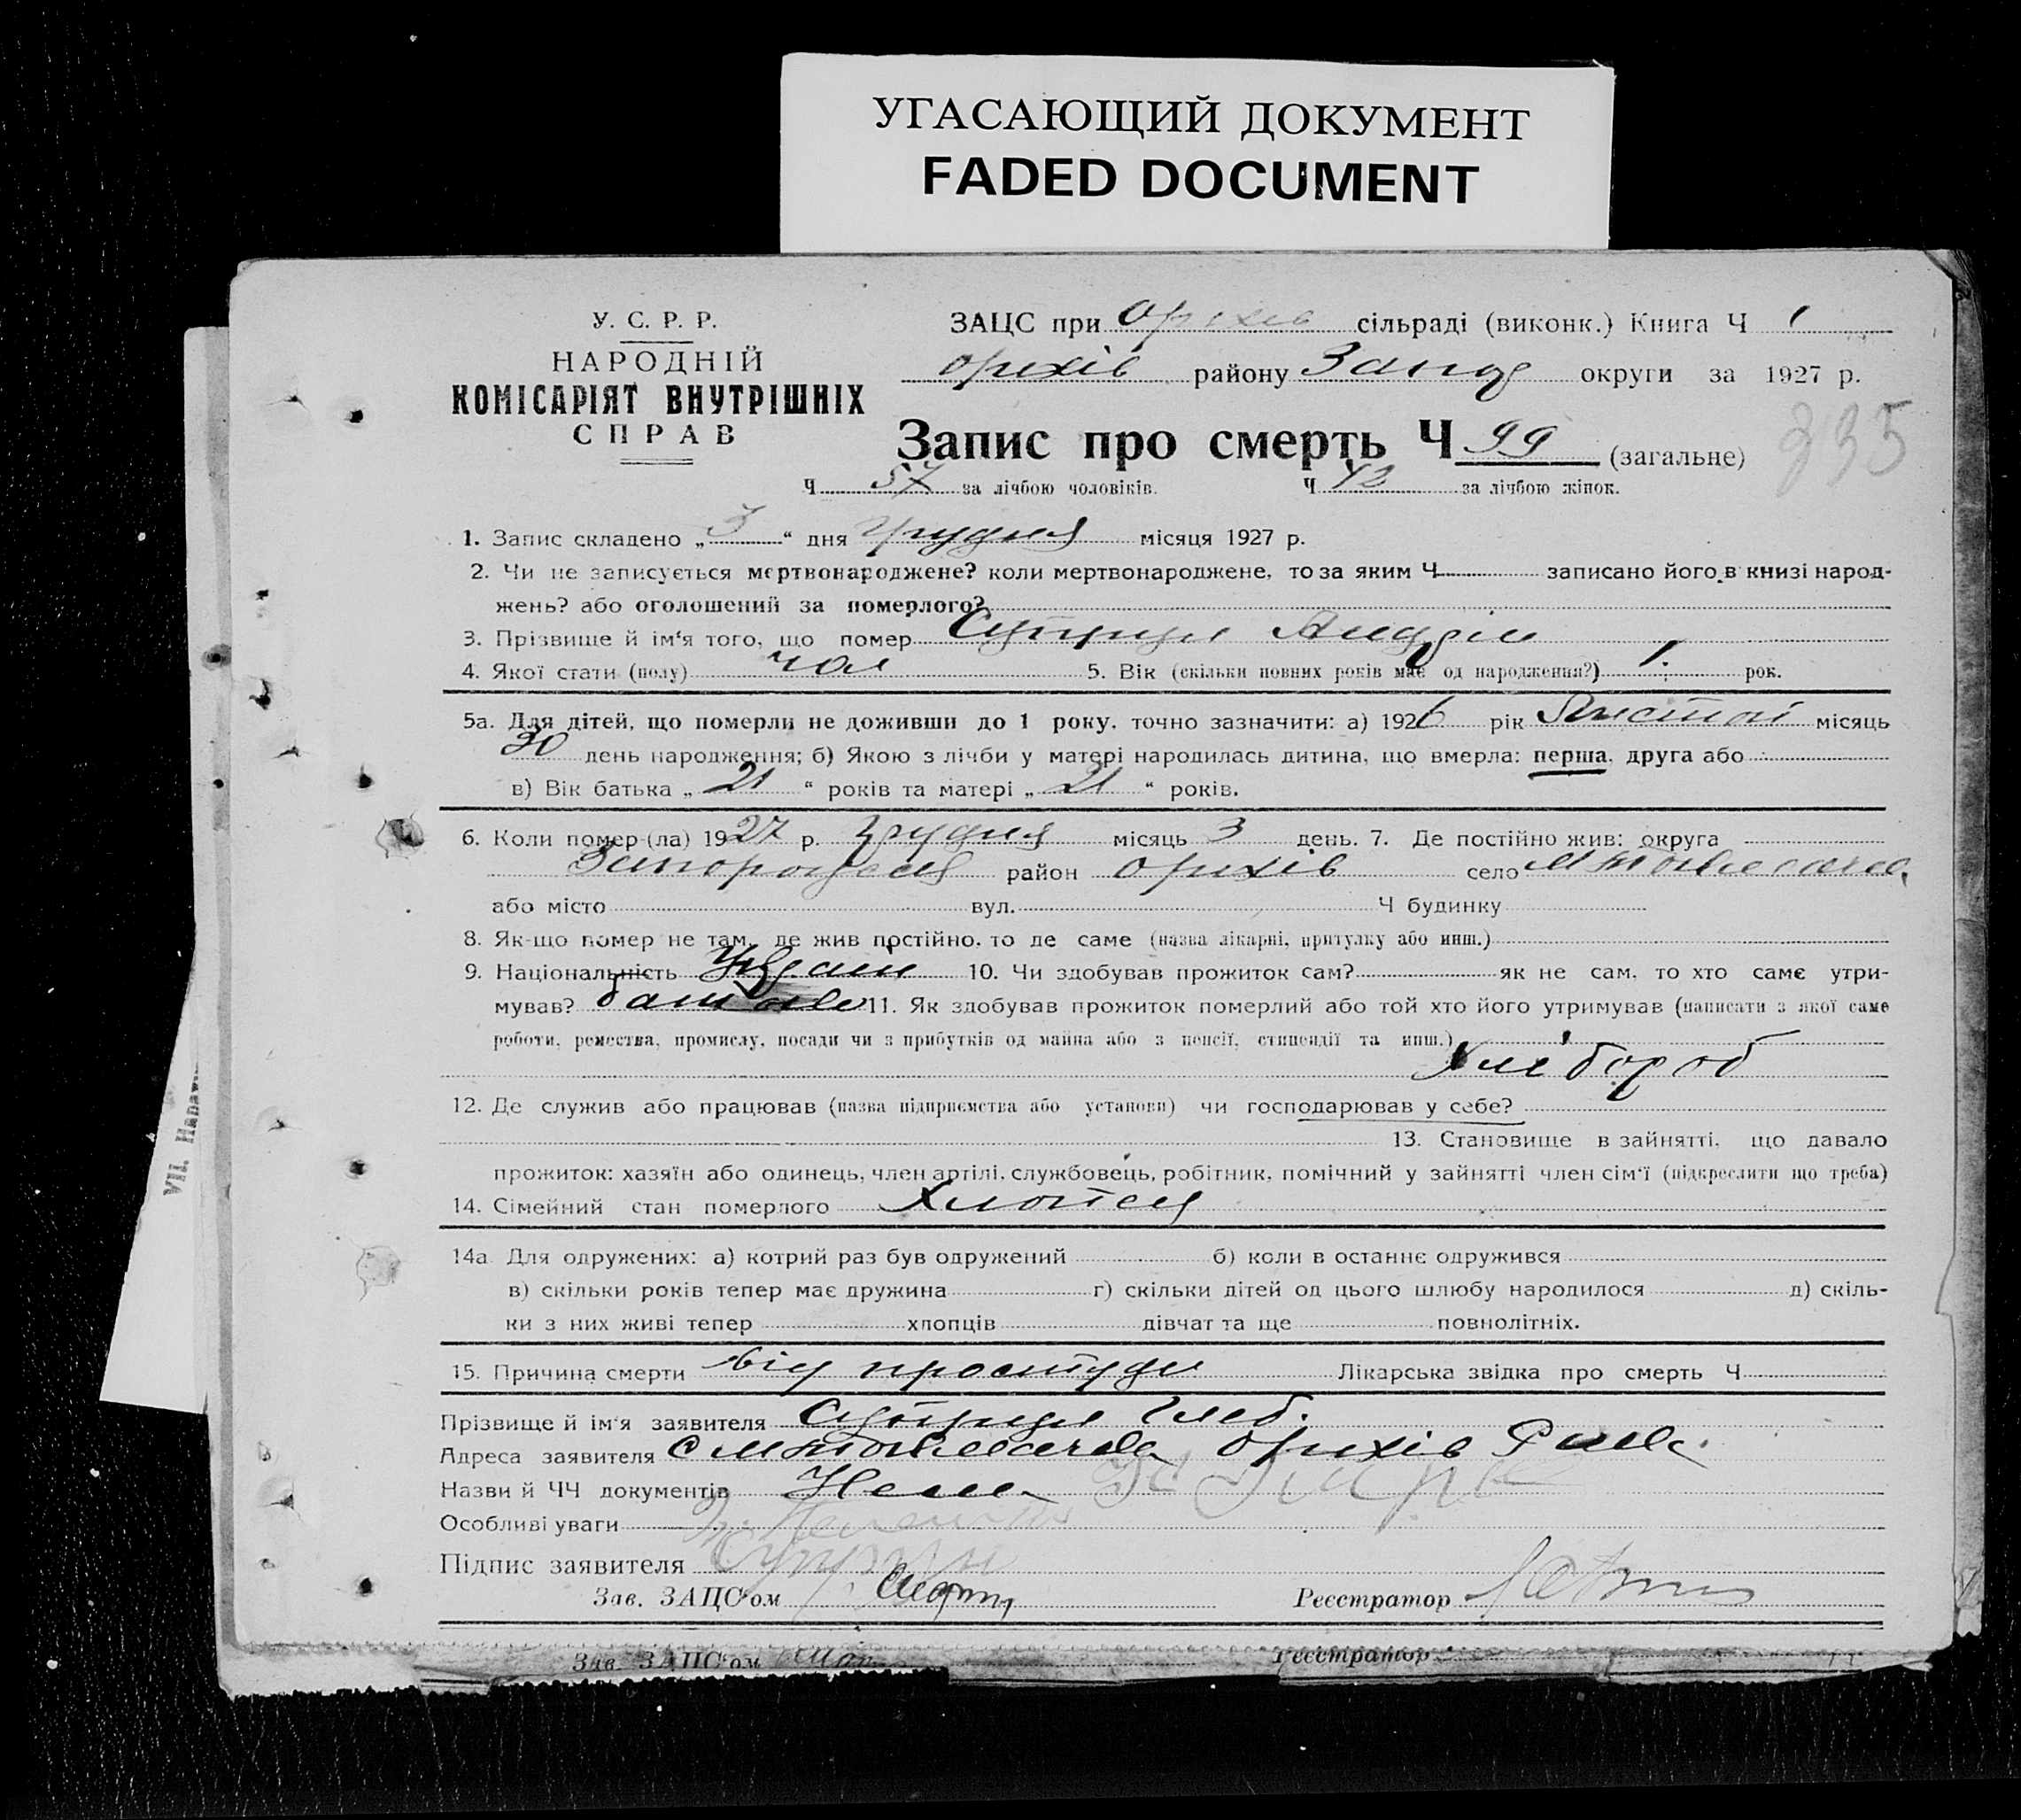 УГАСАЮЩИЙ ДОКУМЕНТ
FADED DOCUMENT
У. С. Р. Р.
НАРОДНІЙ
КОМІСАРІЯТ ВНУТРІШНІХ
СПРАВ
ЗАЦС при Оріхів сільраді (виконк.) Книга Ч 1
Оріхів району Запор округи за 1927 р.
Запис про смерть Ч 99 (загальне)
335
Ч 57 за лічбою чоловіків. Ч 42 за лічбою жінок.
1. Запис складено „ 3 “ дня грудня місяця 1927 р.
2. Чи не записується мертвонароджене? коли мертвонароджене, то за яким Ч записано його в книзі народ-
жень? або оголошений за померлого?
3. Прізвище й ім‘я того, що помер Андрій
4. Якої стати (полу) чол 5. Вік (скільки повних років має од народження?) 1. рок.
5а. Для дітей, що померли не доживши до 1 року, точно зазначити: а) 1926 рік місяць
30 день народження; б) Якою з лічби у матері народилась дитина, що вмерла: перша, друга або
в) Вік батька „ 21 “ років та матері „ 21 “ років.
6. Коли помер (ла) 1927 р. грудня місяць 3 день. 7. Де постійно жив: округа
Запоріжся район Оріхів село
або місто вул. Ч будинку
8. Як-що помер не там, де жив постійно, то де саме (назва лікарні, притулку або инш.)
9. Національність Україн 10. Чи здобував прожиток сам? як не сам, то хто саме утри-
мував? батько 11. Як здобував прожиток померлий або той хто його утримував (написати з якої саме
роботи, ремества, промислу, посади чи з прибутків од майна або з пенсії, стипендії та инш.)
Хлібороб
12. Де служив або працював (назва підприємства або установи) чи господарював у себе?
13. Становище в зайнятті, що давало
прожиток: хазяїн або одинець, член артілі, службовець, робітник, помічний у зайнятті член сім‘ї (підкреслити що треба)
14. Сімейний стан померлого Хлопець
14а. Для одружених: а) котрий раз був одружений б) коли в останнє одружився
в) скільки років тепер має дружина г) скільки дітей од цього шлюбу народилося д) скіль-
ки з них живі тепер хлопців дівчат та ще повнолітніх.
15. Причина смерти від простуди Лікарська звідка про смерть Ч
Прізвище й ім‘я заявителя Глеб.
Адреса заявителя Оріхів
Назви й ЧЧ документів Нема
Особливі уваги
Підпис заявителя
Зав. ЗАЦС‘ом Реєстратор
Зав. ЗАЦС‘ом Реєстратор